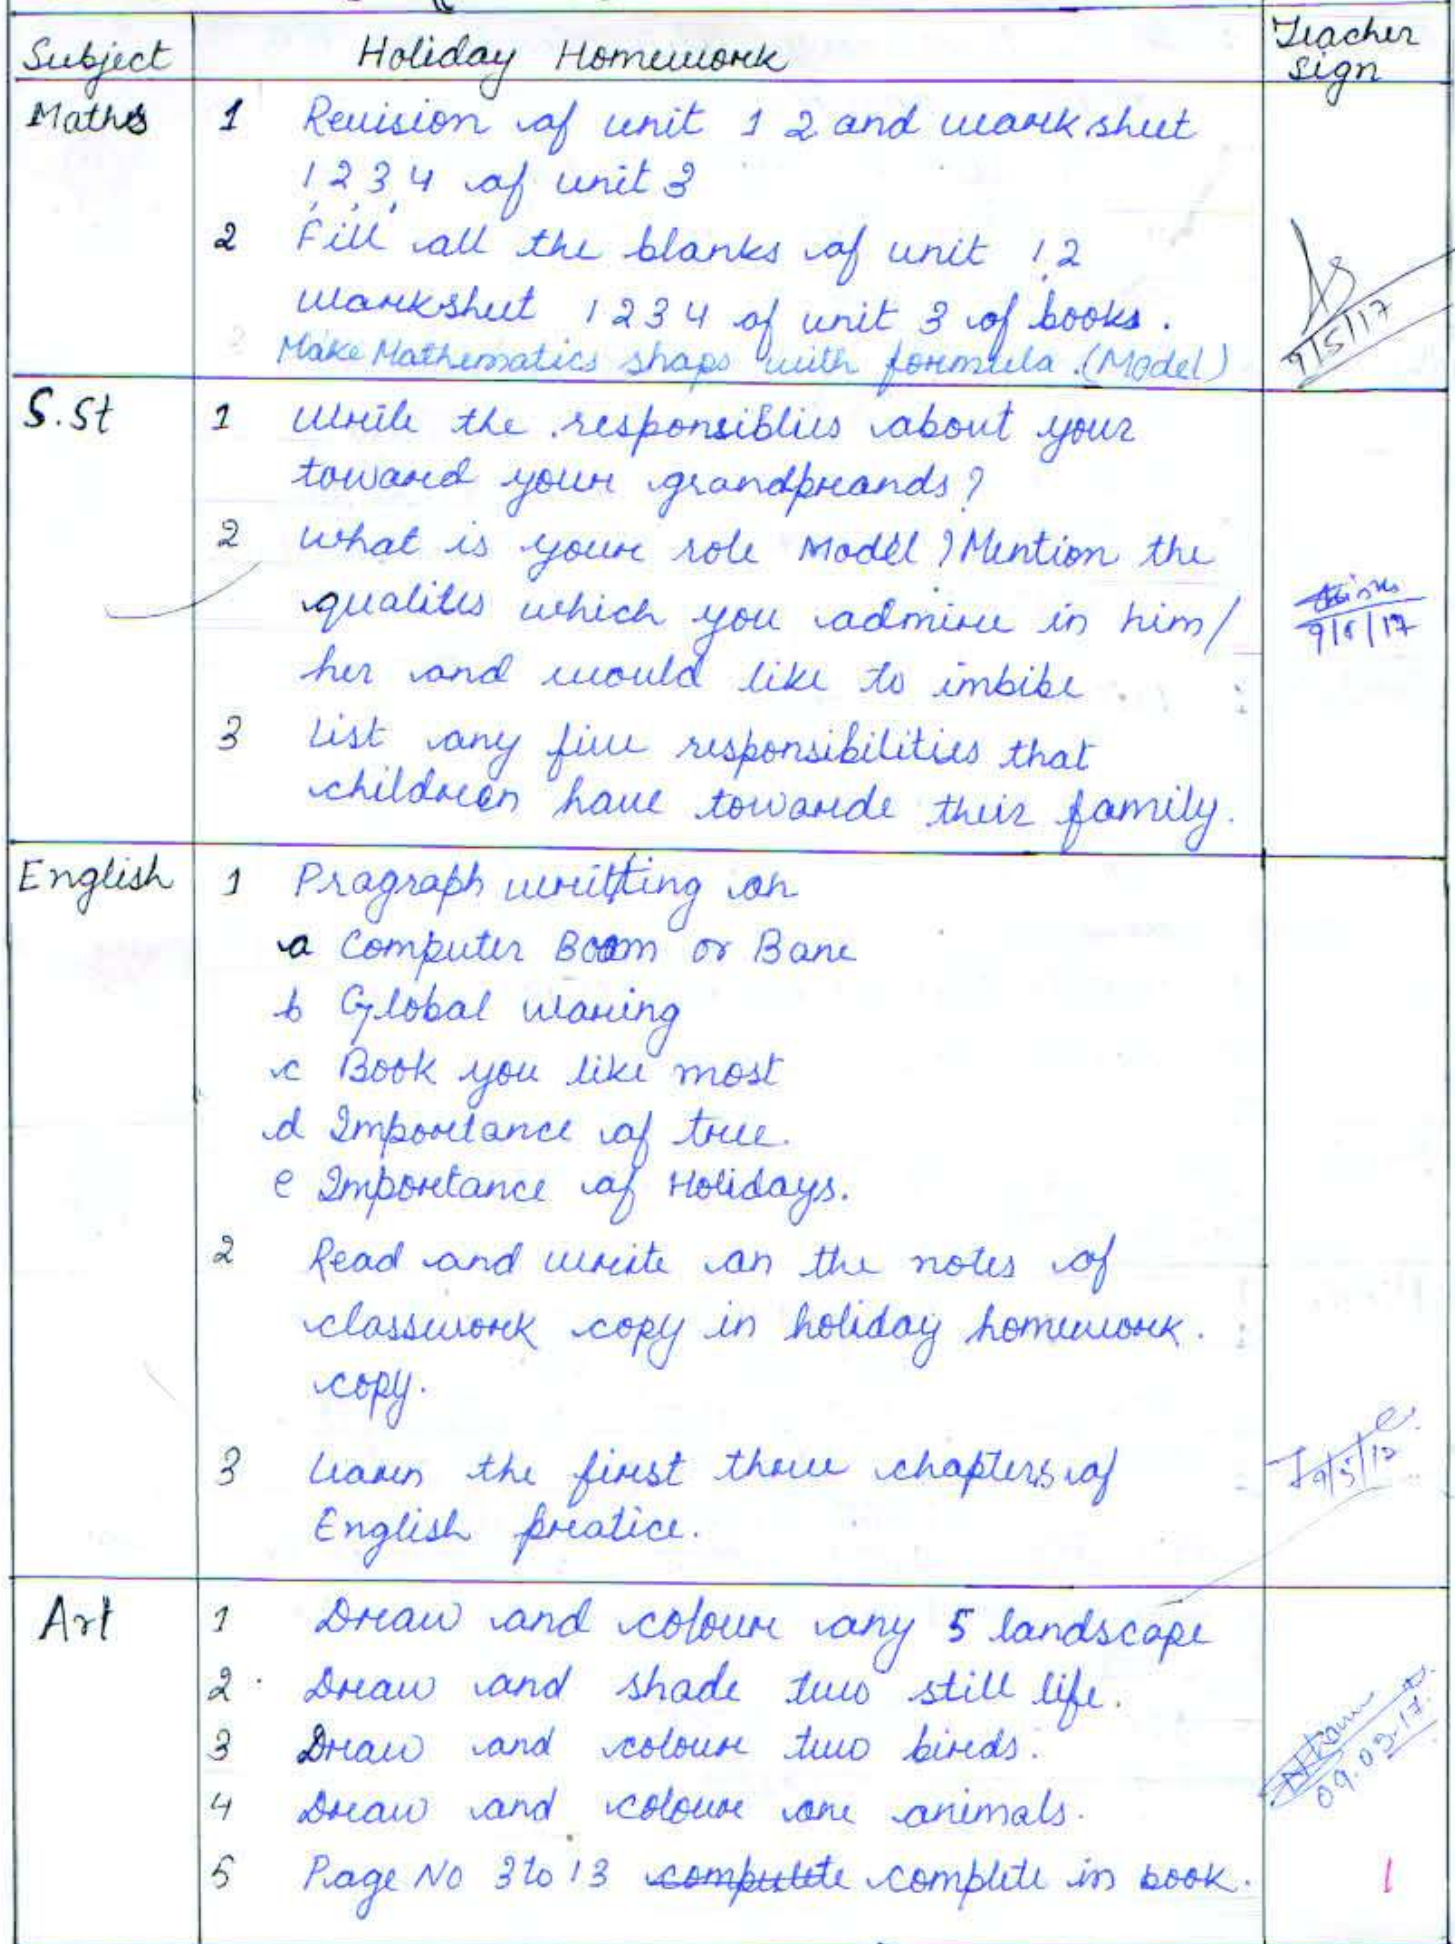 Subject Holiday Homework Teacher sign
Maths 1 Revision of unit 1 2 and work sheet
1, 2, 3, 4 of unit 3
2 Fill all the blanks of unit 1,2
worksheet 1 2 3 4 of unit 3 of books.
Make Mathematics shaps with formula. (Model)
9/5/17
S.St 1 Write the responsiblies about your
toward your grandpreands?
2 what is your role Model? Mention the
qualites which you admire in him/
her and would like to imbibe
9/5/17
3 List any five responsibilities that
children have towarde their family.
English 1 Pragraph writting on
a Computer Boom or Bane
b Global waring
c Book you like most
d Importance of tree.
e Importance of Holidays.
2 Read and write on the notes of
classwork copy in holiday homework.
copy.
3 Learn the first three chapters of
English pratice.
9/5/17
Art 1 Draw and colour any 5 landscape
2. Draw and shade two still life.
3 Draw and colour two birds.
09.05.17
4 Draw and colour one animals.
5 Page No 3 to 13 complete in book.